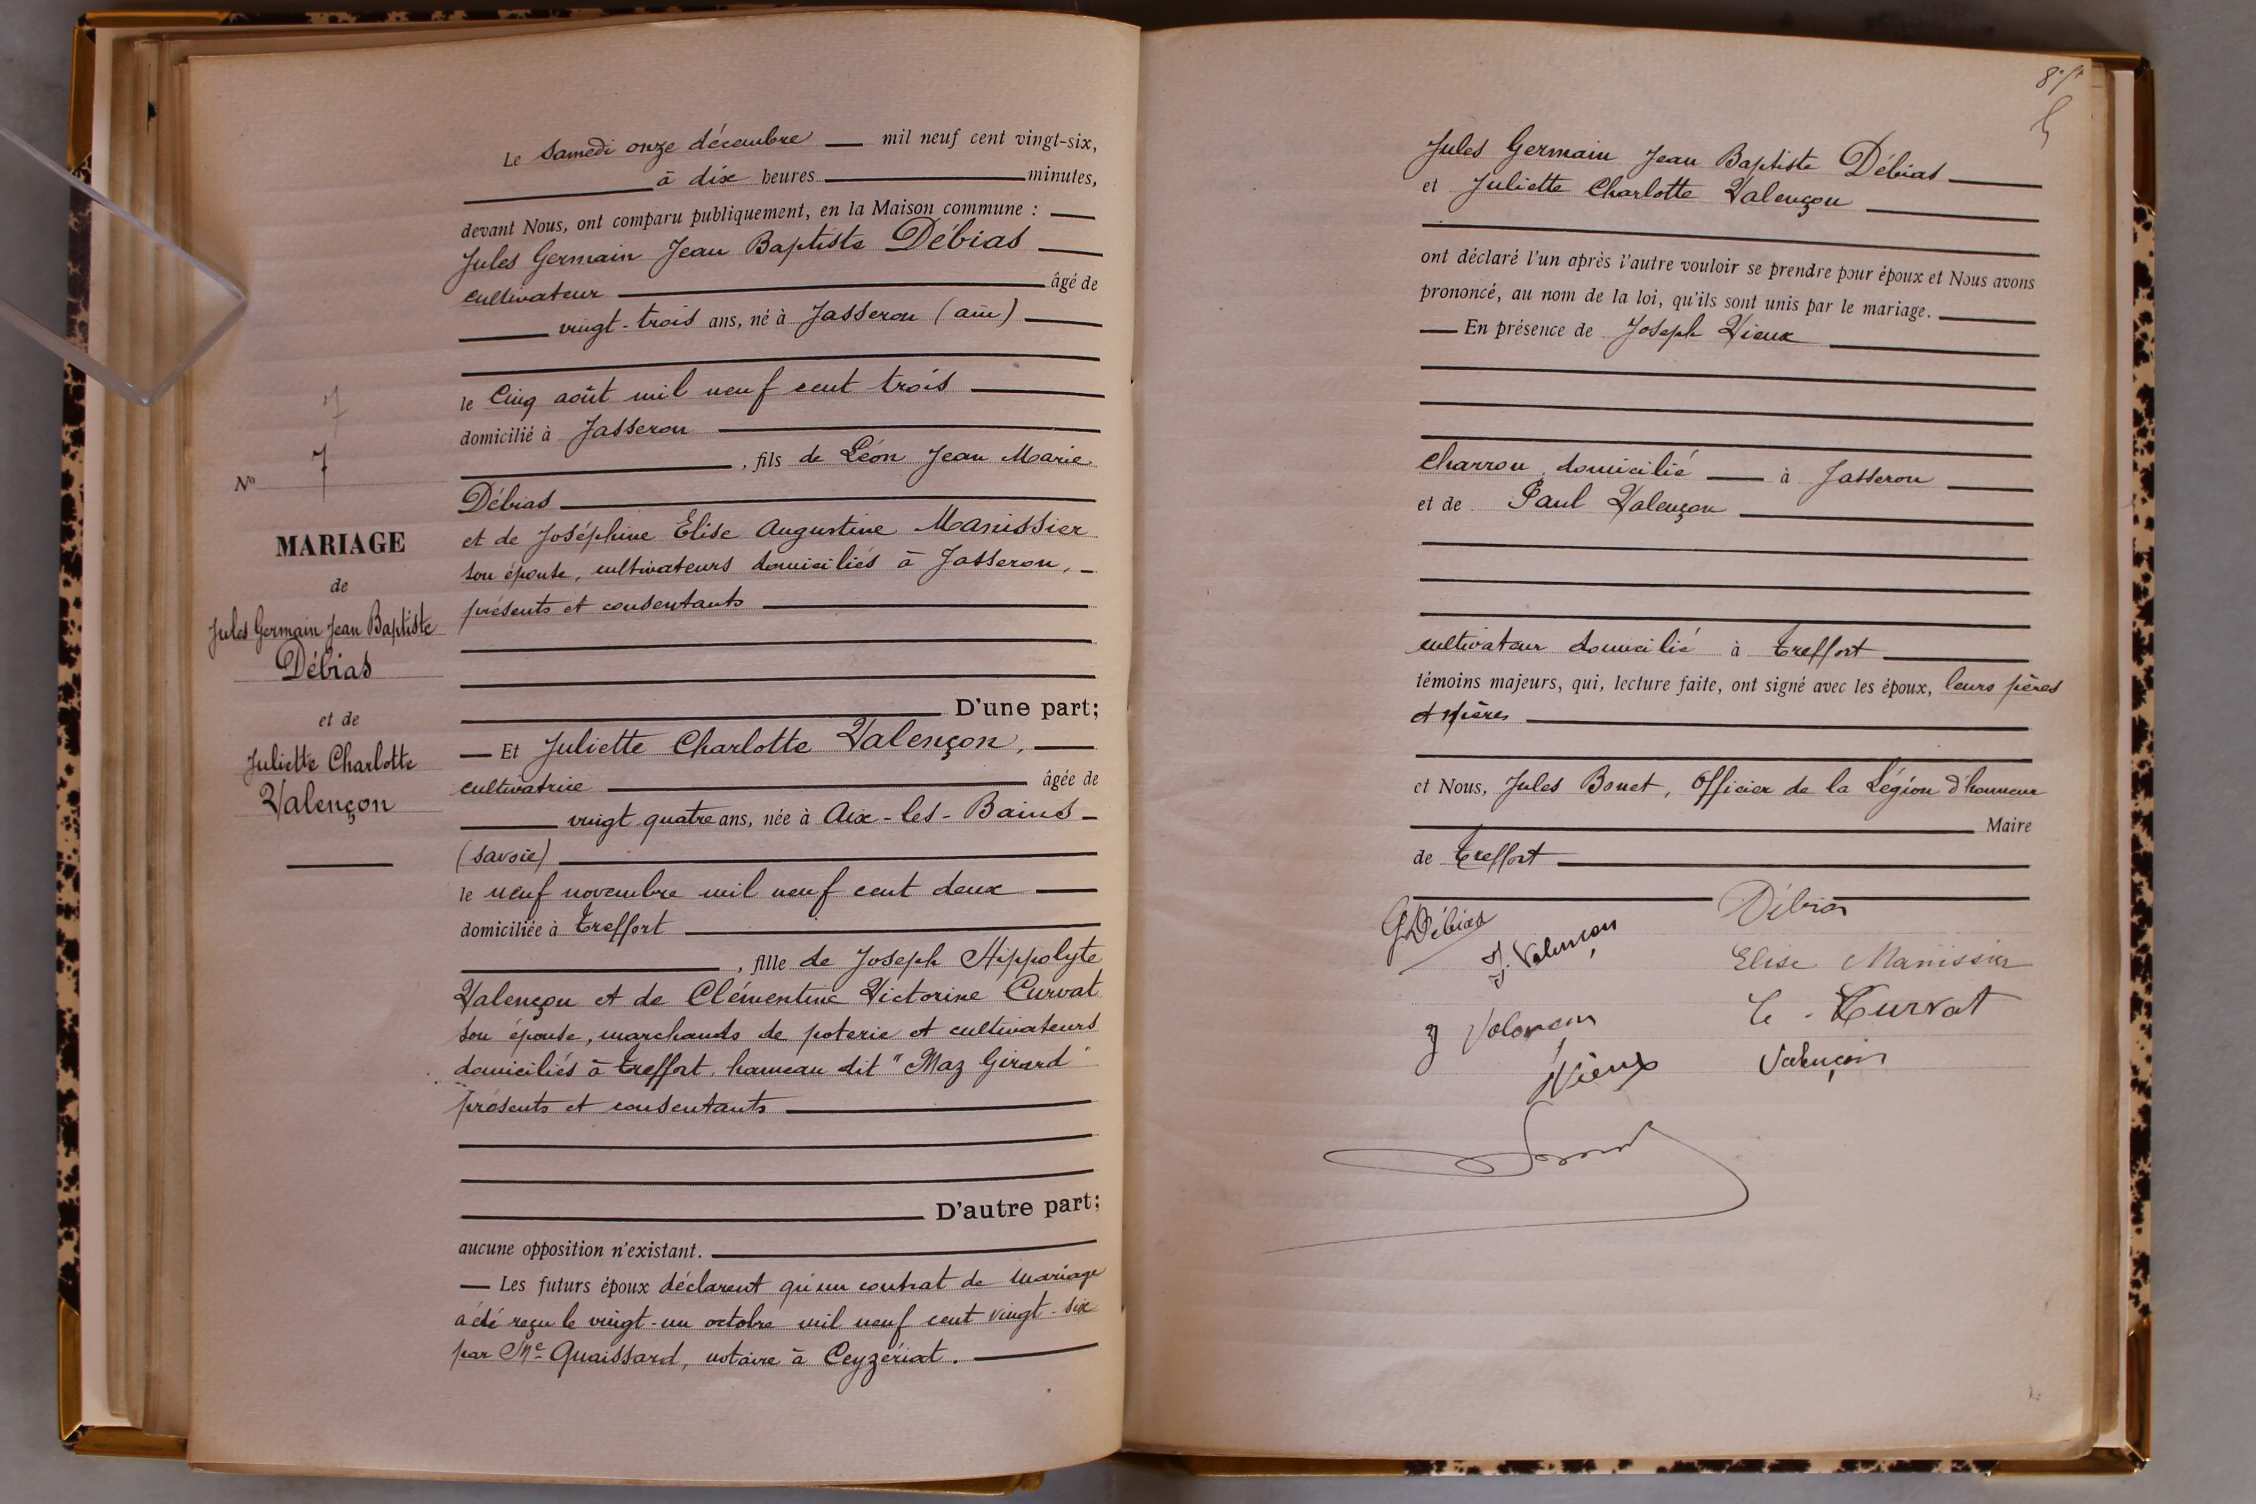 Le Samedi onze décembre mil neuf cent vingt-six,
à dix heures minutes,
devant Nous, ont comparu publiquement, en la Maison commune :
Jules Germain Jean Baptiste Débias
cultivateur âgé de
vingt-trois ans, né à Jasseron (ain)
le Cinq août mil neuf cent trois
domicilié à Jasseron
, fils de Léon Jean Marie
Débias
et de Joséphine Elise Augustine Manissier
son épouse, cultivateurs domiciliés à Jasseron,
présents et consentants
D'une part;
Et Juliette Charlotte Valençon,
cultivatrice âgée de
vingt quatre ans, née à Aix-les-Bains
(Savoie)
le neuf novembre mil neuf cent deux
domiciliée à Treffort
, fille de Joseph Hippolyte
Valençon et de Clémentine Victorine Curvat
son épouse, marchands de poterie et cultivateurs
domiciliés à Treffort, hameau dit "Maz Girard"
présents et consentants
D'autre part;
aucune opposition n'existant.
Les futurs époux déclarent qu'un contrat de mariage
a été reçu le vingt-un octobre mil neuf cent vingt-six
par Me Quaissard, notaire à Ceyzériat.
7
No 7
MARIAGE
de
Jules Germain Jean Baptiste
Débias
et de
Juliette Charlotte
Valençon
Jules Germain Jean Baptiste Débias
et Juliette Charlotte Valençon
ont déclaré l'un après l'autre vouloir se prendre pour époux et Nous avons
prononcé, au nom de la loi, qu'ils sont unis par le mariage.
En présence de Joseph Vieux
charron, domicilié à Jasseron
et de Paul Valençon
cultivateur domicilié à Treffort
témoins majeurs, qui, lecture faite, ont signé avec les époux, leurs pères
et mères
et Nous, Jules Bonet, Officier de la Légion d'honneur
Maire
de Treffort
G Débias
Débias
J. Valençon
Elise Manissier
J Valençon
C. Curvat
Vieux
Valençon